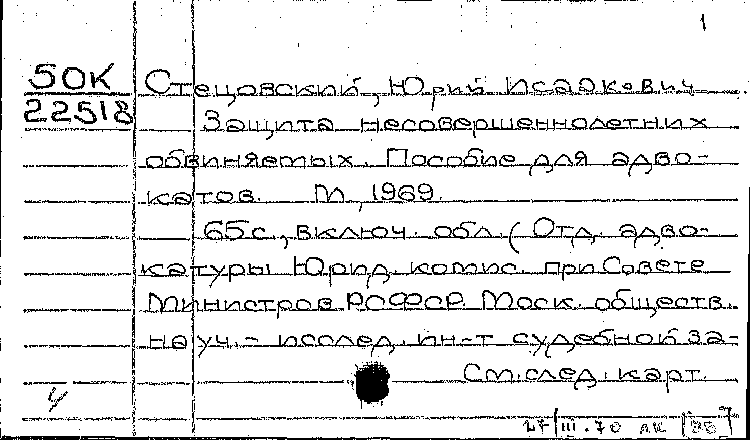 1
50К
22518
Стецовский, Юрий Исаакович
Защита несовершеннолетних
обвиняемых. Пособие для адво-
катов. М, 1969.
65с., включ. обл. (Отд. адво-
катуры Юрид. комис. при Совете
Министров РСФСР. Моск. обществ.
науч.- исслед. ин-т судебной за-
См. след. карт.
27 III.70 АК